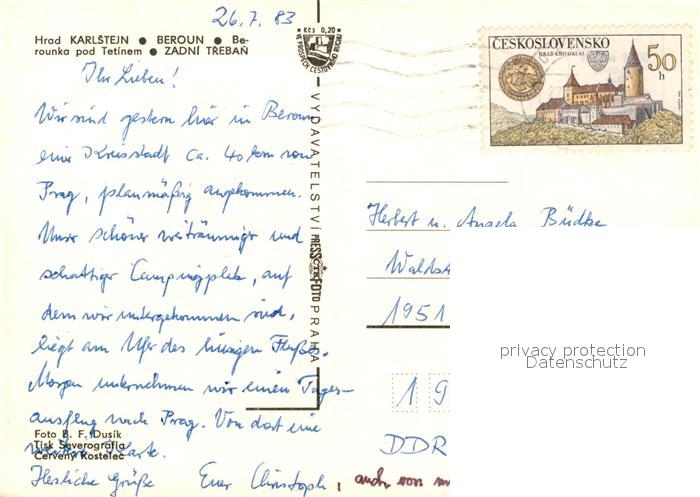 26.7.83
Hrad KARLŠTEJN ● BEROUN ● Be-
rounka pod Tetínem ● ZADNÍ TŘEBAŇ
Ihr Lieben!
Wir sind gestern hier in Beroun
einer Kreisstadt ca. 40 km von
Prag, planmäßig angekommen.
Unser schöner weiträumiger und
schattiger Campingplatz, auf
dem wir untergekommen sind,
liegt am Ufer des hiesigen Flußes.
Morgen unternehmen wir einen Tages-
ausflug nach Prag. Von dort eine
weitere Karte.
Herzliche Grüße Euer Christoph, auch von
Foto B. F. Dusík
Tisk Severografia
Červený Kostelec
VYDAVATELSTVÍ PRESSFOTO PRAHA
Kčs 0,20
VE PROSPĚCH CESTOVNÍHO RUCHU
ČESKOSLOVENSKO
HRAD KŘIVOKLÁT
50 h
Herbert u. Angela Büdke
Walds
1951
19
DDR
privacy protection
Datenschutz